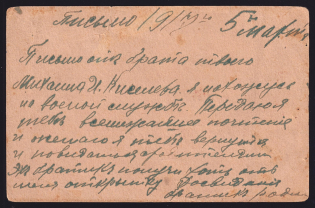 Письмо 1917 г 5 марта
Письмо от брата твоего
Михаила И. Киселева я нахожусь
на военой службе Передаю
тебе всенижайшее почтение
и желаю я тебе вернуться
и повидаться
За братик получи хоть от
меня открытку Досвидания
братик